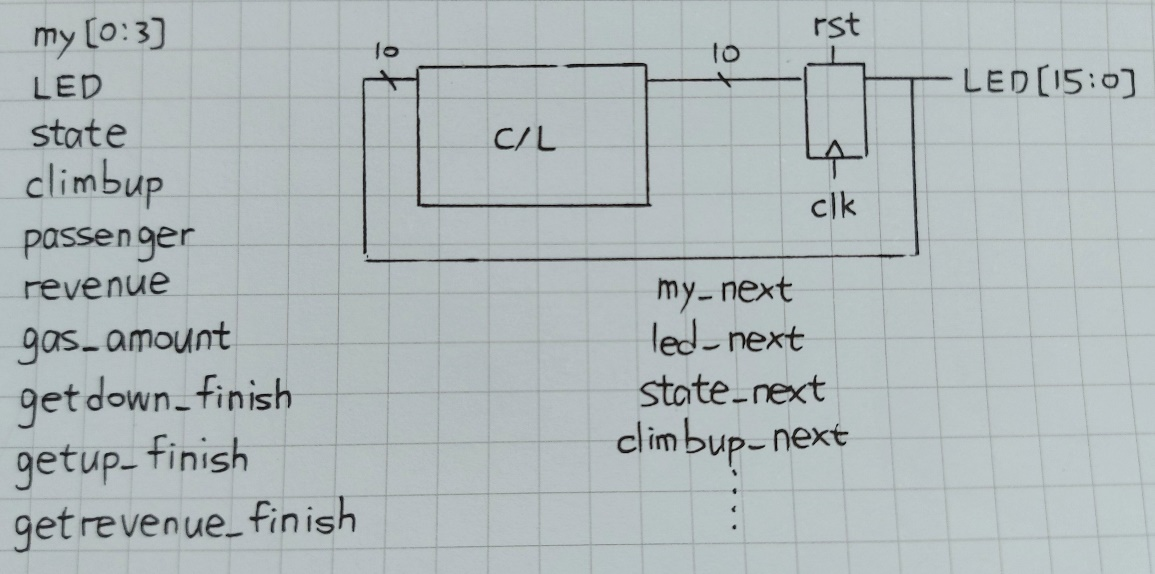 my[0:3]
LED
state
climbup
passenger
revenue
gas_amount
getdown_finish
getup_finish
getrevenue_finish
10
C/L
10
rst
clk
LED[15:0]
my_next
led_next
state_next
climbup_next